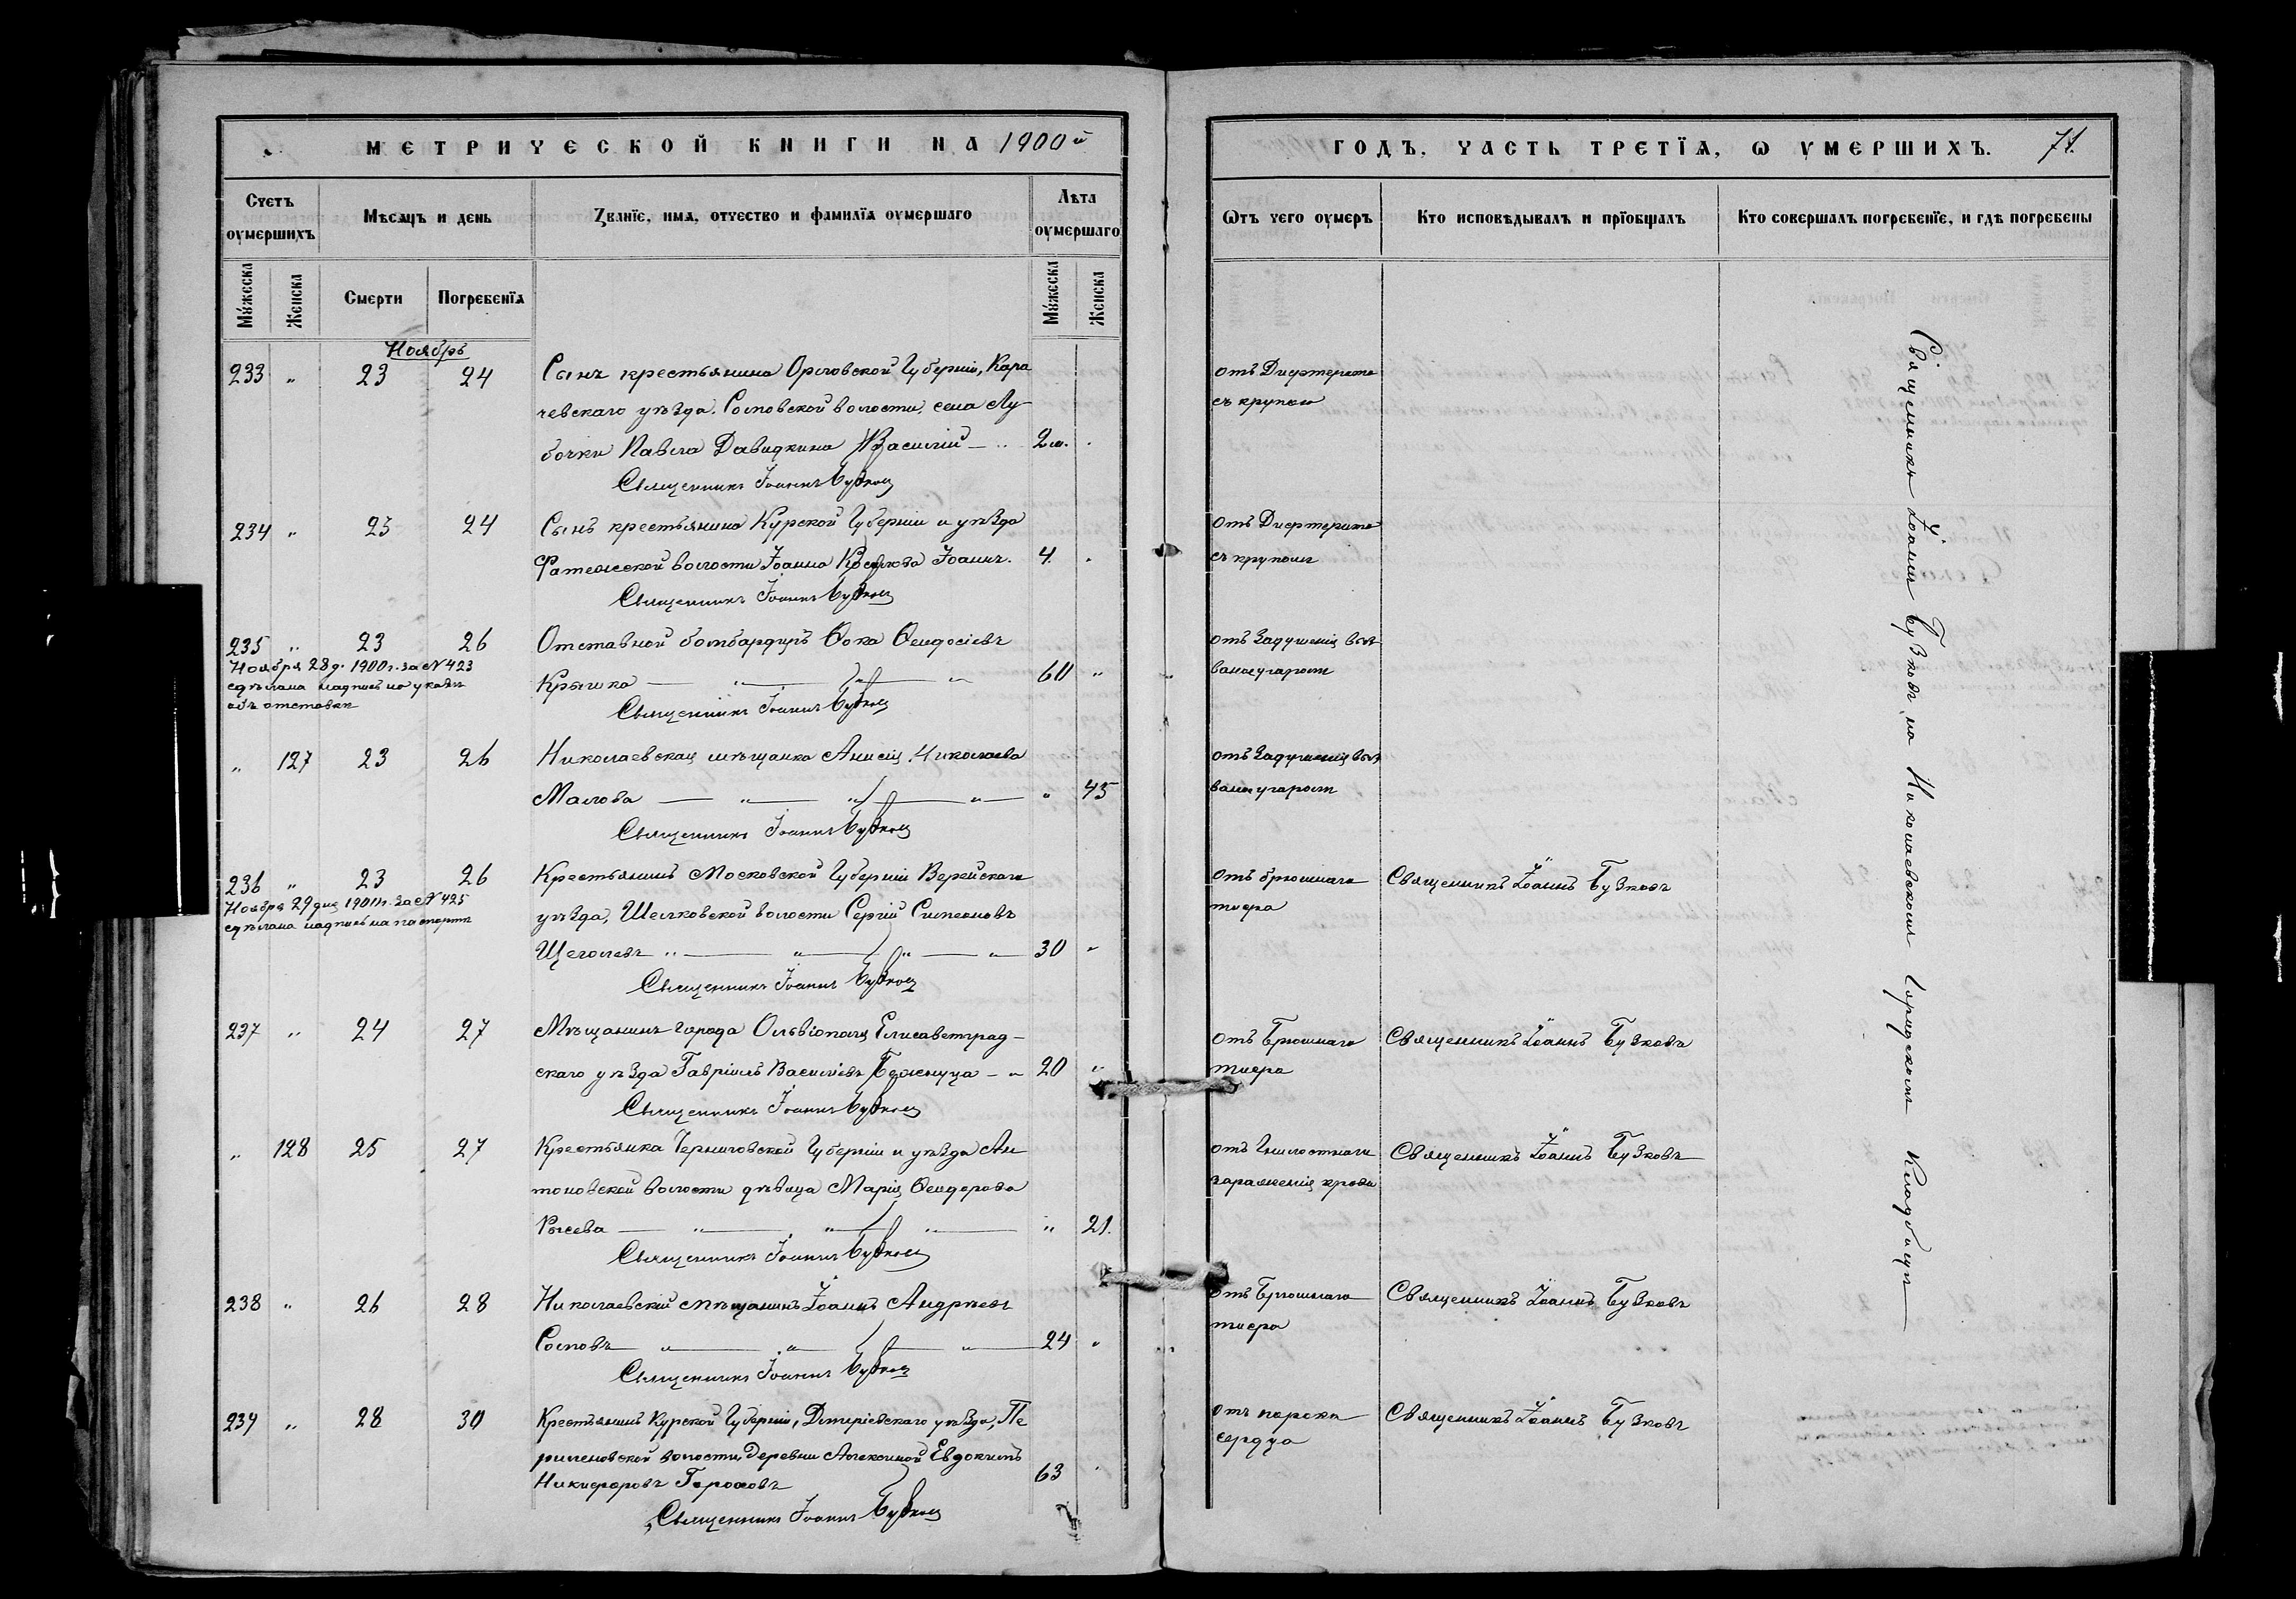 МЕТРИЧЕСКОЙ КНИГИ НА 1900й
Счетъ оумершихъ
Мѣсяцъ и день
Званїе, имя, отчество и фамилїя оумершаго
Лѣта оумершаго
Мꙋжеска
Женска
Смерти
Погребенїя
Мꙋжеска
Женска
Ноябрь
233 " 23 24 Сынъ крестьянина Орловской Губерніи, Кара
чевскаго уѣзда, волости, села Лу
бочки Павла Давидкина Василій — " 2 м.
Священникъ Іоаннъ Бузковъ
234 " 23 24 Сынъ крестьянина Курской Губерніи и уѣзда
Фатежской волости Іоанна Іоаннъ. 4.
Священникъ Іоаннъ Бузковъ
235 " 23 26 Отставной бомбардиръ Ѳока Ѳеодосіевъ
Ноября 28 д. 1900 г. за № 423
сдѣлана надпись на указѣ
объ отставкѣ
Крышка — " — " — " 60 "
Священникъ Іоаннъ Бузковъ
" 127 23 26 Николаевская мѣщанка Анисія Николаева
Маслова — " — " — " — " 45
Священникъ Іоаннъ Бузковъ
236 " 23 26 Крестьянинъ Московской Губерніи Верейскаго
Ноября 29 дня 1900 г. за № 425
сдѣлана надпись на паспортѣ
уѣзда, Шелковской волости Сергій Симеоновъ
Щеголевъ " — " — " — " — 30 "
Священникъ Іоаннъ Бузковъ
237 " 24 27 Мѣщанинъ города Ольвіополя Елисаветград-
скаго уѣзда Гавріилъ Васильевъ — " 20 "
Священникъ Іоаннъ Бузковъ
" 128 25 27 Крестьянка Черниговской Губерніи и уѣзда Ан
тоновской волости дѣвица Марія Ѳеодорова
— " — " — " — " 21.
Священникъ Іоаннъ Бузковъ
238 " 26 28 Николаевскій мѣщанинъ Іоаннъ Андреевъ
— " — " — " — 24 "
Священникъ Іоаннъ Бузковъ
239 " 28 30 Крестьянинъ Курской Губерніи, Дмитріевскаго уѣзда,
волости, Деревни Евдокимъ
Никифоровъ Гороховъ 63
Священникъ Іоаннъ Бузковъ
ГОДЪ, ЧАСТЬ ТРЕТЇЯ, Ѡ ОУМЕРШИХЪ. 71.
Ѿтъ чего оумеръ
Кто исповѣдывалъ и прїобщалъ
Кто совершалъ погребенїе, и гдѣ погребены
отъ Дифтерита
съ крупомъ
отъ Дифтерита
съ крупомъ
отъ Задушенія
угаромъ
отъ Задушенія
угаромъ
отъ брюшнаго Священникъ Іоаннъ Бузковъ
тифа
отъ Брюшнаго Священникъ Іоаннъ Бузковъ
тифа
отъ Гнилостнаго Священникъ Іоаннъ Бузковъ
зараженія крови
отъ Брюшнаго Священникъ Іоаннъ Бузковъ
тифа
отъ порока Священникъ Іоаннъ Бузковъ
сердца
Священникъ Іоаннъ Бузковъ на Николаевскомъ Городскомъ Кладбищѣ